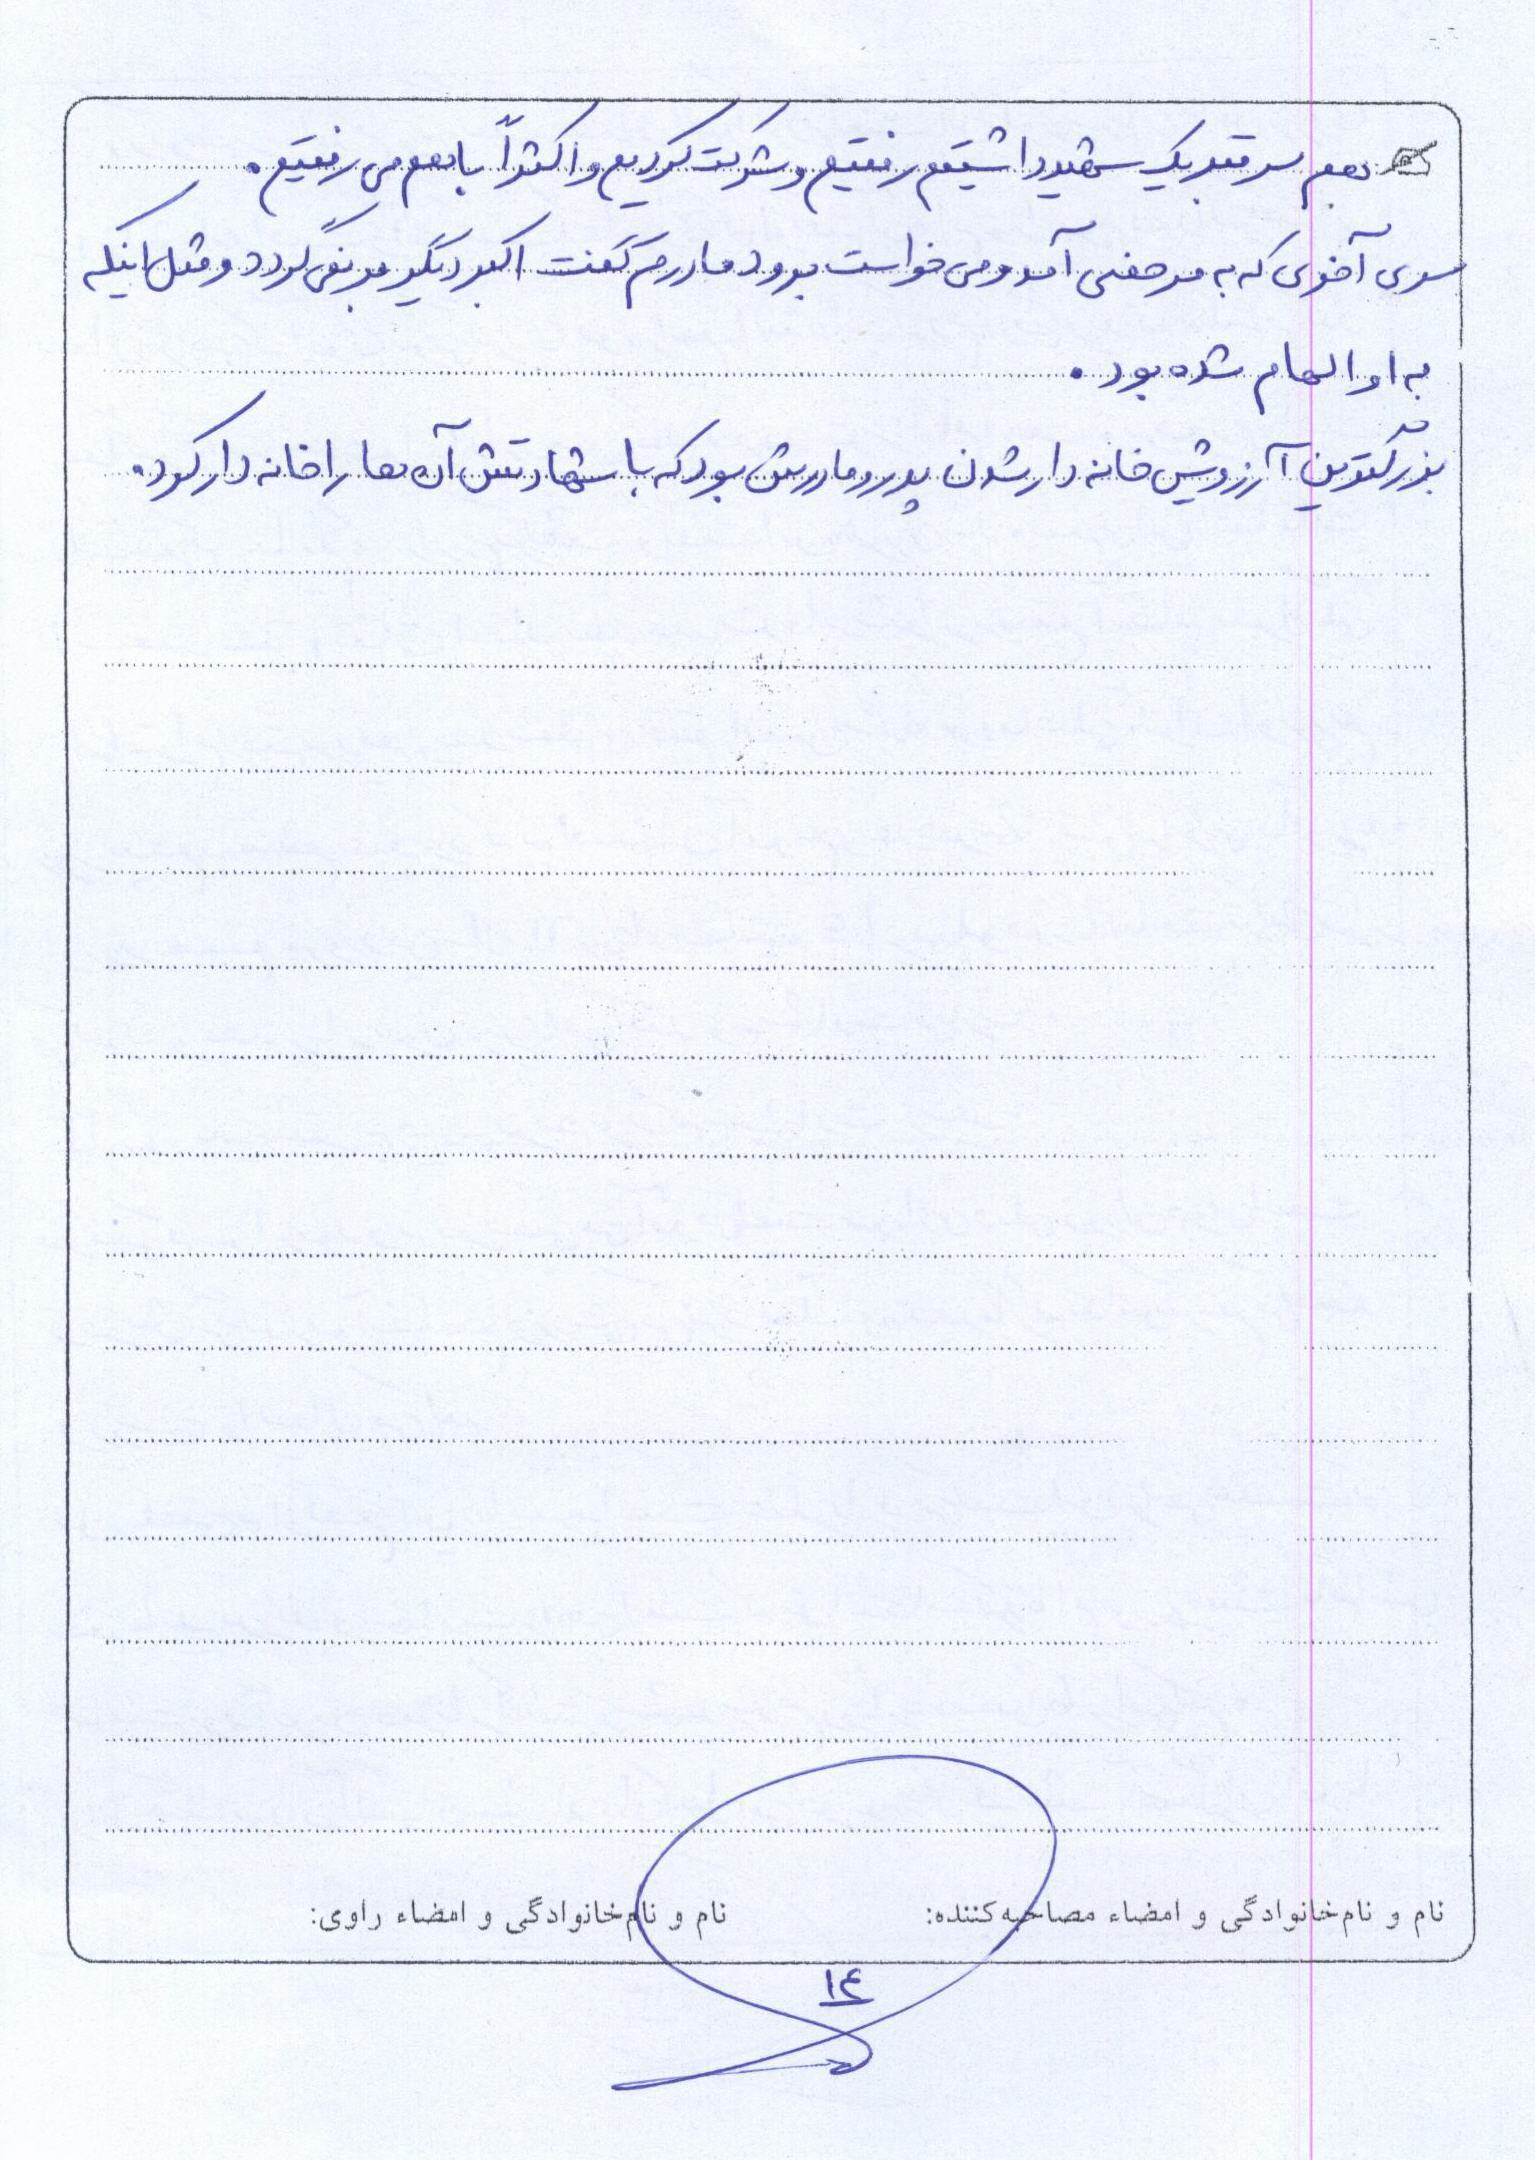 بهم سر قبر یک شهید داشتیم رفتیم و شرکت کردیم و اکثراً با هم می رفتیم.
سری آخری که به مرخصی آمد و می خواست برود مادرم گفت اکبر دیگر بر نمی گردد و مثل اینکه
به او الهام شده بود.
بزرگترین آرزویش خانه دار شدن پدر و مادرش بود که با شهادتش آن ها را خانه دار کرد.
نام و نام‌خانوادگی و امضاء مصاحبه‌کننده: نام و نام‌خانوادگی و امضاء راوی:
۱۴